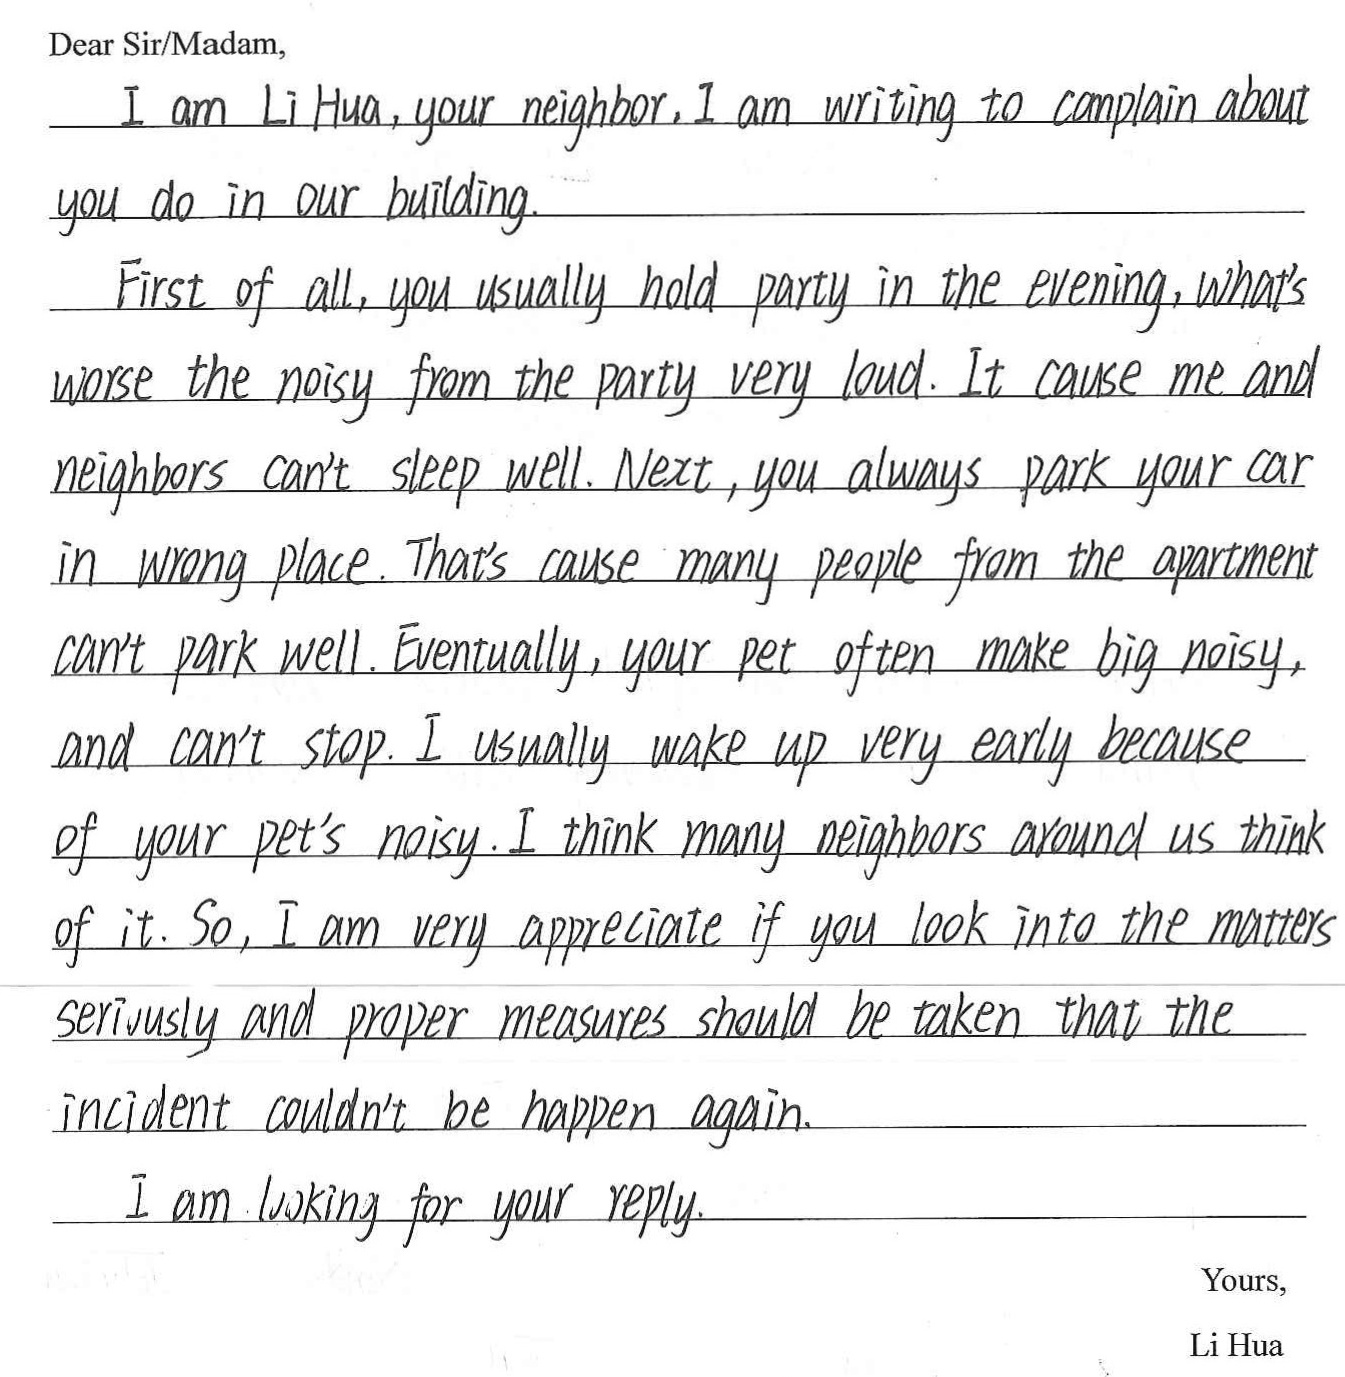 Dear Sir/Madam,
I am Li Hua, your neighbor. I am writing to complain about
you do in our building.
First of all, you usually hold party in the evening, what's
worse the noisy from the party very loud. It cause me and
neighbors can't sleep well. Next, you always park your car
in wrong place. That's cause many people from the apartment
can't park well. Eventually, your pet often make big noisy,
and can't stop. I usually wake up very early because
of your pet's noisy. I think many neighbors around us think
of it. So, I am very appreciate if you look into the matters
seriously and proper measures should be taken that the
incident couldn't be happen again.
I am looking for your reply.
Yours,
Li Hua